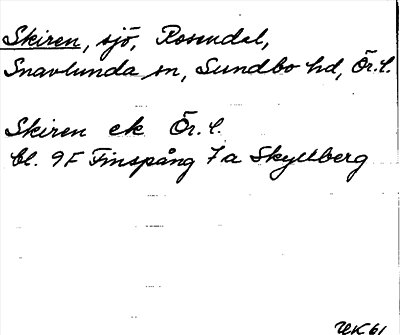 Skiren, sjö, Rosendal,
Snavlunda sn, Sundbo hd, Ör.l.
Skiren ek Ör.l.
bl. 9F Finspång 7a Skyllberg
UK 61